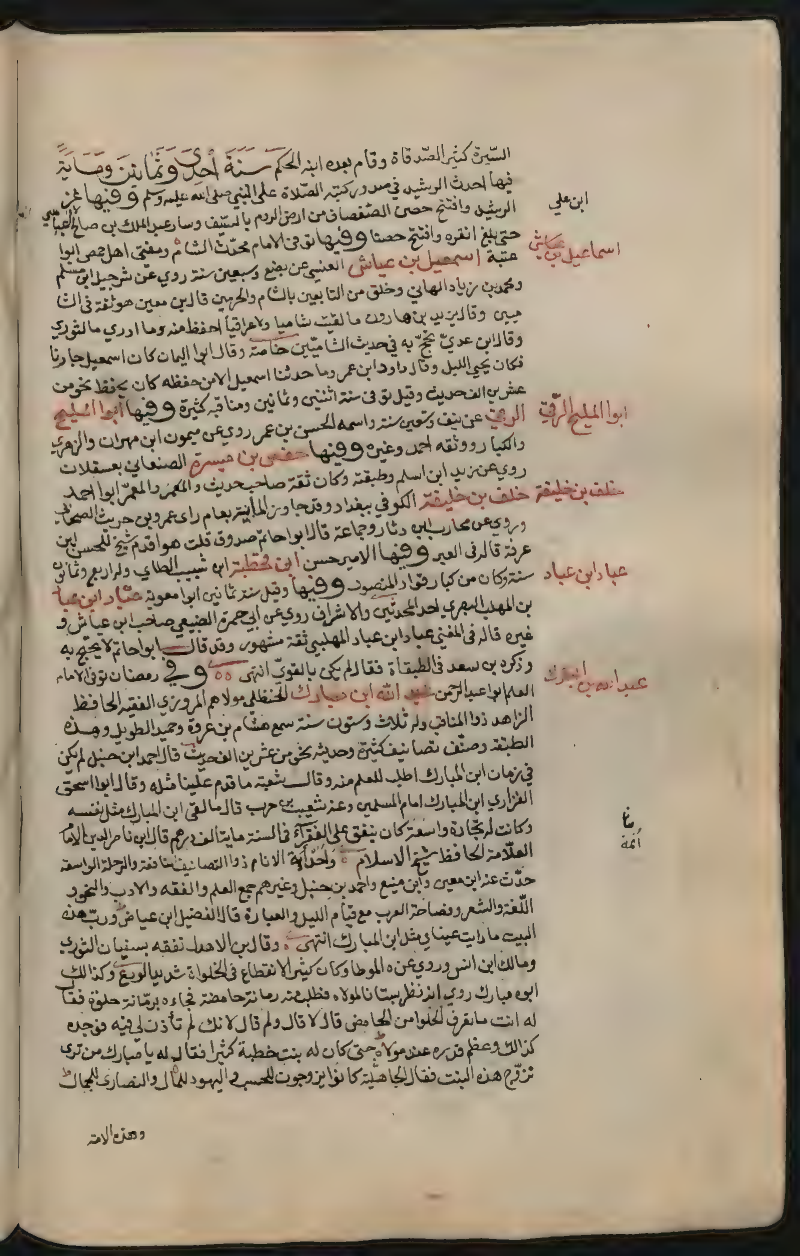 السيرة كثير الصدقاة وقام بعده ابنه الحكم سنة احدى وثمانين وماية
فيها احدث الرشيد في صدور كتبه الصلاة على النبي صلى الله عليه وسلم وفيها غز
الرشيد وافتتح حصن الصفصاف من ارض الروم بالسيف وسار عبد الملك بن صالح العباسي
ابن علي
حتى بلغ انقره وافتتح حصنا وفيها توفي الامام محدث الشام ومفتي اهل حمص ابوا
اسماعيل بن عياش
عتبة اسمعيل بن عياش العنسي عن بضع وسبعين سنة روي عن شرحبيل ابن مسلم
ومحمد بن زياد الهاني وخلق من التابعين بالشام والحرمين قال ابن معين هو ثقة في الشا
ميين وقال يزيد بن هارون ما لقيت شاميا ولا عراقيا احفظ منه وما ادري ما الثوري
وقال ابن عدي يحتج به في حديث الشاميين خاصة وقال ابوا اليمان كان اسمعيل جارنا
فكان يحيى الليل وقال داود ابن عمرو ما حدثنا اسمعيل الا من حفظه كان يحفظ نحو من
عشرين الف حديث وقيل توفي سنة اثنتي وثمانين ومناقبه كثيرة وفيها ابوا المليح
ابوا المليح الرقي
الرقي عن نيف وتسعين سنة واسمه الحسن بن عمر روي عن ميمون ابن مهران والزهري
والكبار ووثقه احمد وغيره وفيها حفص بن ميسرة الصنعاني بعسقلان
روي عن زيد ابن اسلم وطبقته وكان ثقة صاحب حديث والمعمر ابوا احمد
خلف بن خليفة
خلف بن خليفة الكوفي ببغداد وقد جاوز المأية بعام راى عمرو بن حريث الصحابي
وروي عن محارب ابن دثار وجماعة قال ابوا حاتم صدوق قلت هو اقدم شيخ للحسن ابن
عرفة قاله في العبر وفيها الامير حسن ابن قحطبة ابن شبيب الطاي وله اربع وثمانون
سنة وكان من كبار قواد المنصور وفيها وقيل سنة ثمانين ابوا معوية عباد ابن عباد
عباد ابن عباد
بن المهلب البصري احد المحدثين والاشراف روي عن ابي جمرة الضبعي صاحب ابن عباس و
غيره قاله في المغني عباد ابن عباد المهلبي ثقة مشهور وقد قال ابوا حاتم لا يحتج به
وذكره بن سعد في الطبقاة فقال لم يكن بالقوي انتهى وفي رمضان توفي الامام
عبد الله بن المبارك
العلم ابوا عبد الرحمن عبد الله ابن مبارك الحنظلي مولاهم المروزي الفقيه الحافظ
الزاهد ذوا المناقب وله ثلاث وستون سنة سمع هشام بن عروة وحميد الطويل وهذه
الطبقة وصنف تصانيف كثيرة وحديثه نحو من عشرين الف حديث قال احمد ابن حنبل لم يكن
في زمان ابن المبارك اطلب للعلم منه وقال شعبة ما قدم علينا مثله وقال ابوا اسحق
الفزاري ابن المبارك امام المسلمين وعن شعيب بن حرب قال ما لقي ابن المبارك مثل نفسه
وكانت له تجارة واسعة كان ينفق على الفقراء في السنة ماية الف درهم قال ابن ناصر الدين الامام
العلامة الحافظ شيخ الاسلام واحد اية الانام ذوا التصانيف النافعة والرحلة الواسعة
ائمة
حدث عنه ابن معين وابن منيع واحمد بن حنبل وغيرهم جمع العلم والفقه والادب والنحو و
اللغة والشعر وفصاحة العرب مع قيام الليل والعبادة قال الفضيل ابن عياض ورب هذه
البيت ما رات عيناي مثل ابن المبارك انتهى وقال بن الاهدل تفقه بسفيان الثوري
ومالك ابن انس وروي عنه الموطا وكان كثير الانقطاع في الخلواة شديد الورع وكذالك
ابوه مبارك روي انه نظر بستانا لمولاه فطلب منه رمانة حامضة فجاءه برمانة حلوة فقال
له انت ما تعرف الحلوا من الحامض قال لا قال ولم قال لانك لم تأذن لي فيه فوجده
كذالك وعظم قدره عند مولاه حتى كان له بنت خطبة كثيرا فقال له يا مبارك من ترى
تزوج هذه البنت فقال الجاهلية كانوا يزوجون للحسب واليهود للمال والنصارى للجمال
وهذه الامة